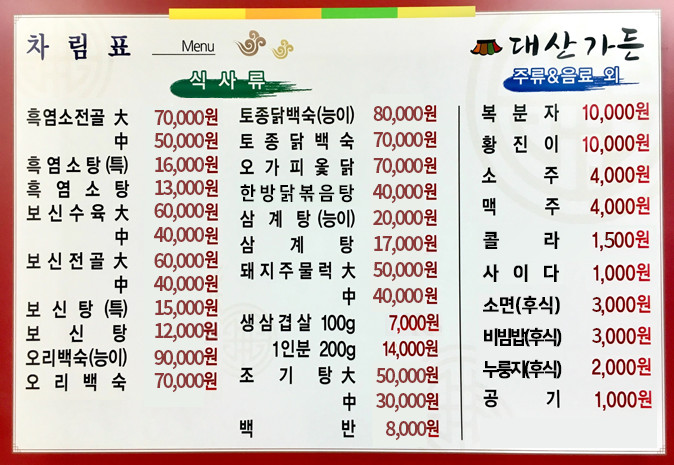 차림표 Menu
대산가든
식사류
흑염소전골 大 70,000원
中 50,000원
흑염소탕 (특) 16,000원
흑염소탕 13,000원
보신수육 大 60,000원
中 40,000원
보신전골 大 60,000원
中 40,000원
보신탕 (특) 15,000원
보신탕 12,000원
오리백숙(능이) 90,000원
오리백숙 70,000원
토종닭백숙(능이) 80,000원
토종닭백숙 70,000원
오가피옻닭 70,000원
한방닭볶음탕 40,000원
삼계탕 (능이) 20,000원
삼계탕 17,000원
돼지주물럭 大 50,000원
中 40,000원
생삼겹살 100g 7,000원
1인분 200g 14,000원
조기탕 大 50,000원
中 30,000원
백반 8,000원
주류&음료 외
복분자 10,000원
황진이 10,000원
소주 4,000원
맥주 4,000원
콜라 1,500원
사이다 1,000원
소면(후식) 3,000원
비빔밥(후식) 3,000원
누룽지(후식) 2,000원
공기 1,000원